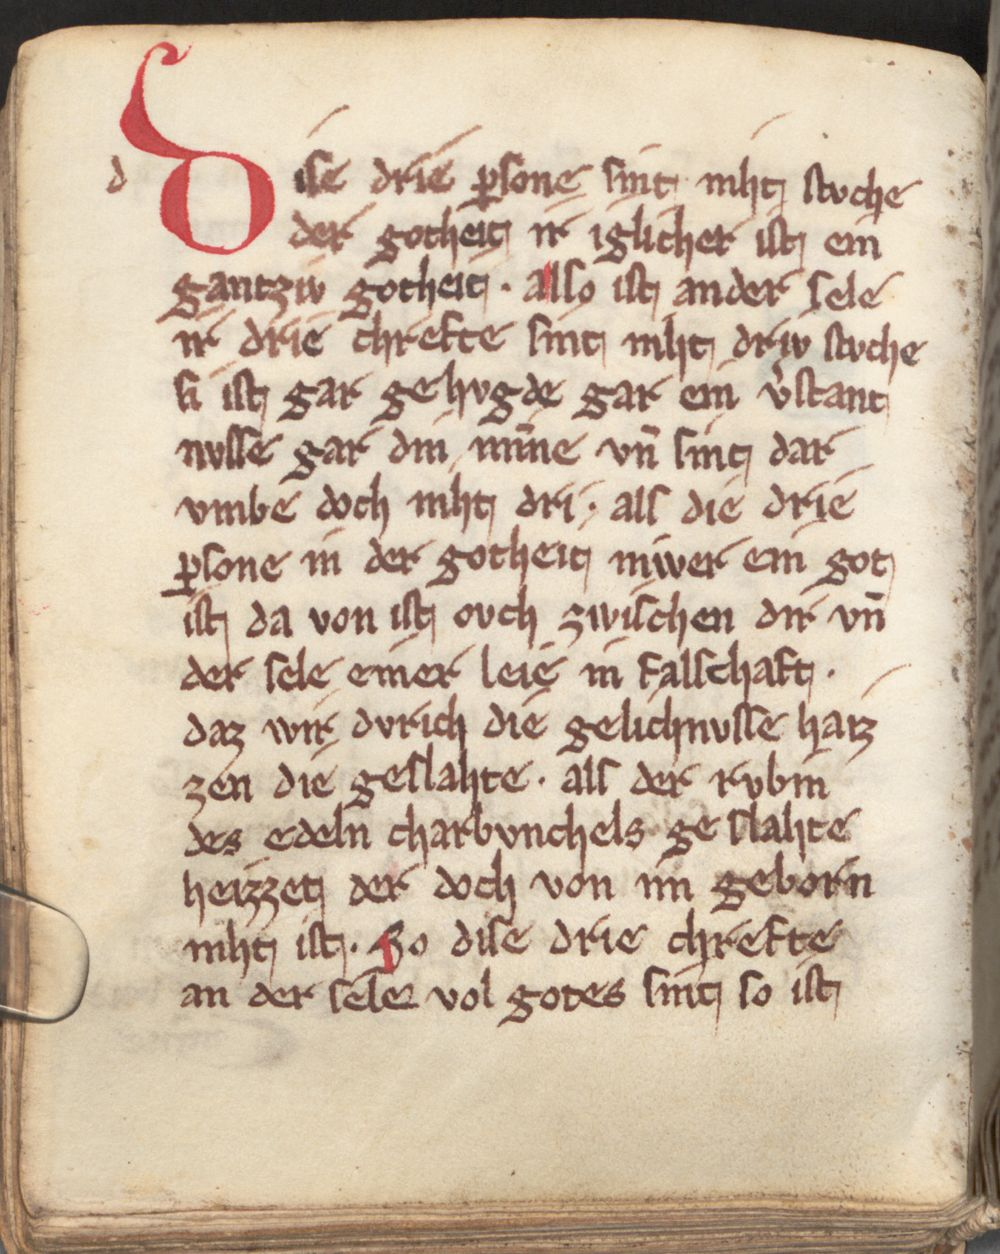 d Dise drie ꝑsone sint niht stvche
der gotheit ir iglicher ist ein
gantziv gotheit · also ist ander sele
ir drie chrefte sint niht driv stvche
si ist gar gehvgde gar ein v̾stant
nvsse gar din minne vn̄ sint dar
vmbe doch niht dri · als die drie
ꝑsone in der gotheit niwer ein got
ist da von ist ovch zwischen dir vn̄
der sele einer leie in falschaft ·
daz wir dvrich die gelichnvsse haiz
zen die geslahte · als der rvbin
des edeln charbvnchels ge slahte
heizzet der doch von im geborn
niht ist · So dise drie chrefte
an der sele vol gotes sint so ist